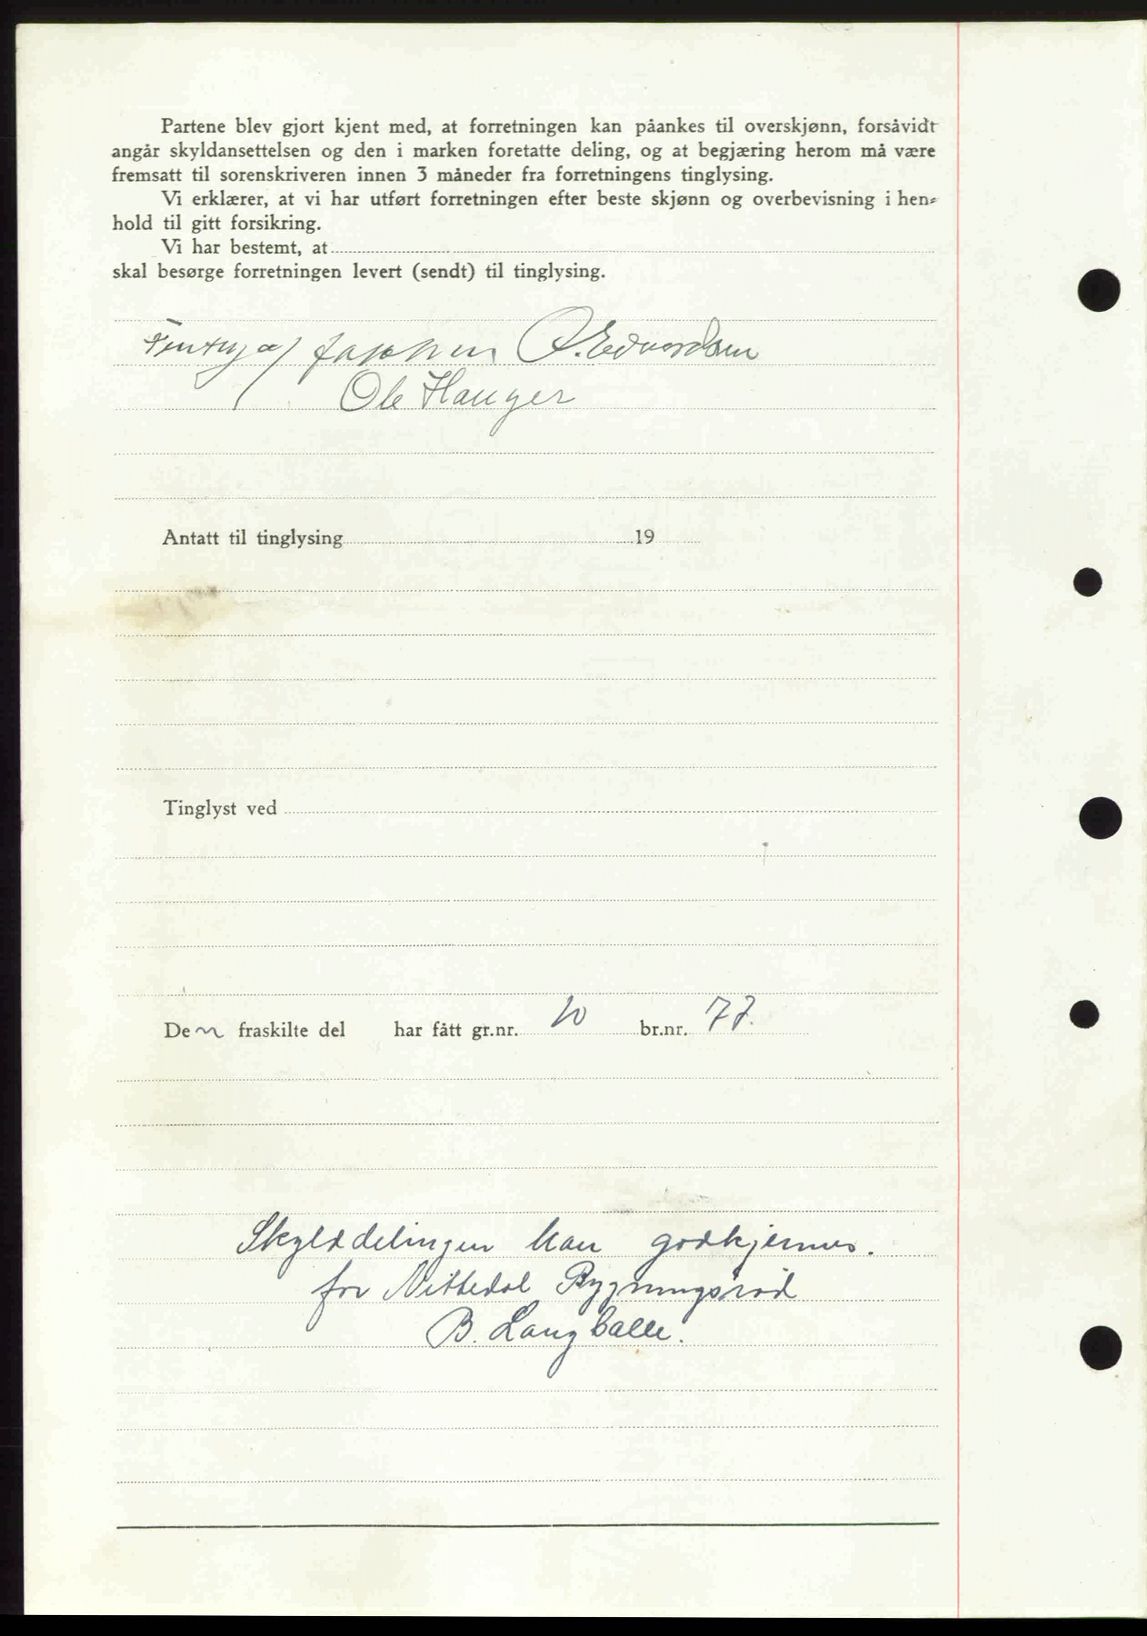 Partene blev gjort kjent med, at forretningen kan påankes til overskjønn, forsåvidt
angår skyldansettelsen og den i marken foretatte deling, og at begjæring herom må være
fremsatt til sorenskriveren innen 3 måneder fra forretningens tinglysing.
Vi erklærer, at vi har utført forretningen efter beste skjønn og overbevisning i hen-
hold til gitt forsikring.
Vi har bestemt, at
skal besørge forretningen levert (sendt) til tinglysing.
O. Edvardsen
Ole Hauger
Antatt til tinglysing 19
Tinglyst ved
Den fraskilte del har fått gr.nr. br.nr. 77.
Skylddelingen kan godkjennes.
for Nittedal Bygningsråd
B. Langballe.